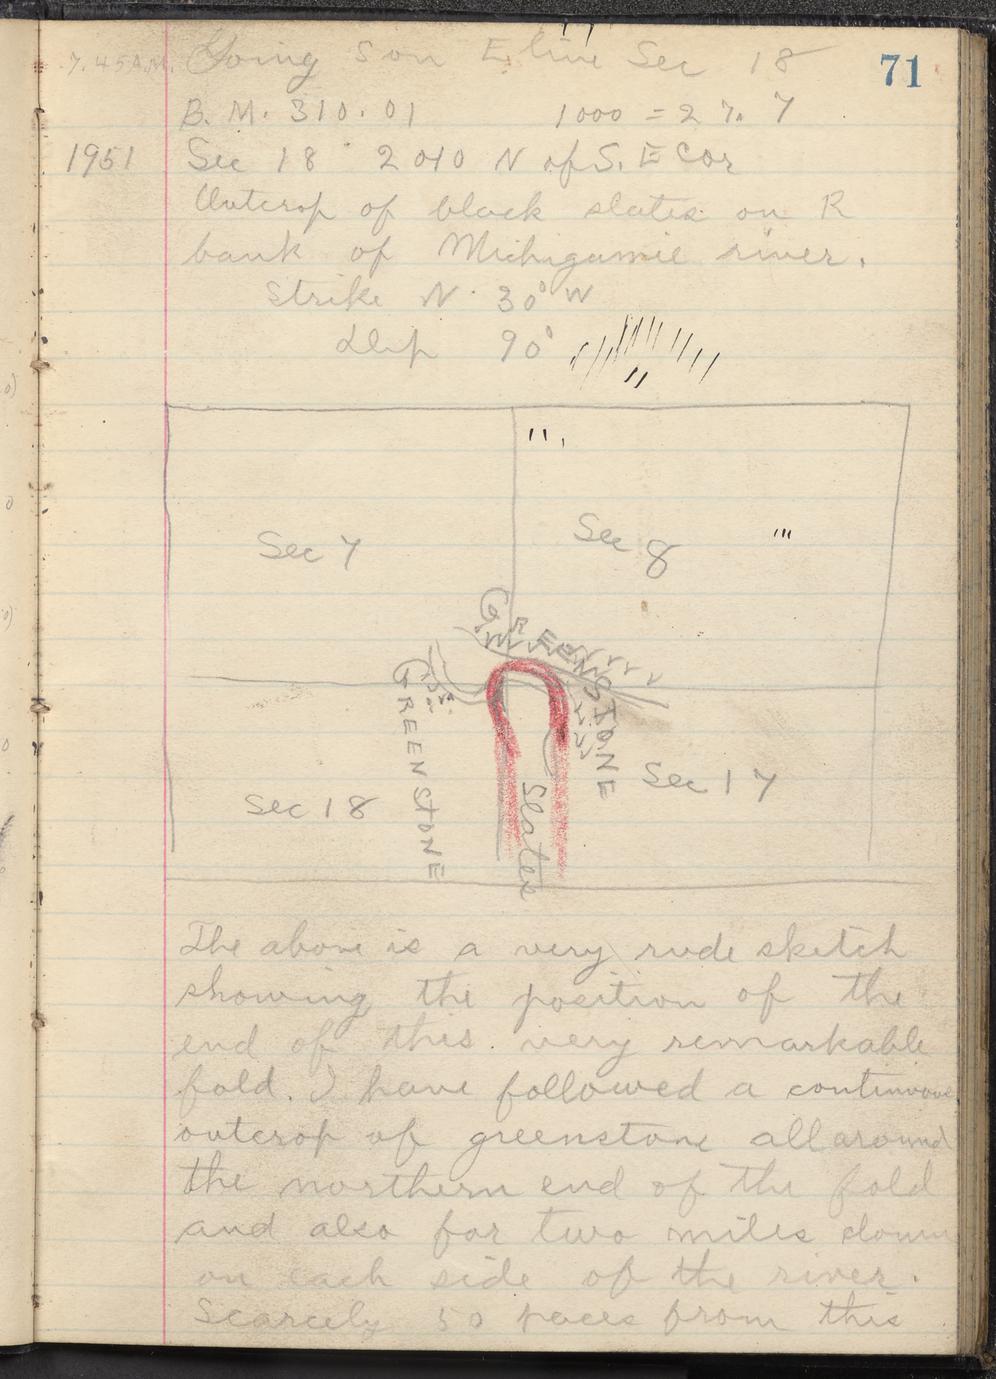 71
7.45 A.M. Going S on E line Sec 18
B. M. 310.01 1000 = 27.7
1951 Sec 18 2040 N of S. E Cor
Outcrop of black slates on R
bank of Michigamie river.
Strike N. 30° W
Dip 90°
Sec 7
Sec 8
GREENSTONE
GREENSTONE
Sec 17
Sec 18
Slates
The above is a very rude sketch
showing the position of the
end of this very remarkable
fold. I have followed a continuous
outcrop of greenstone all around
the northern end of the fold
and also for two miles down
on each side of the river.
Scarcely 50 paces from this